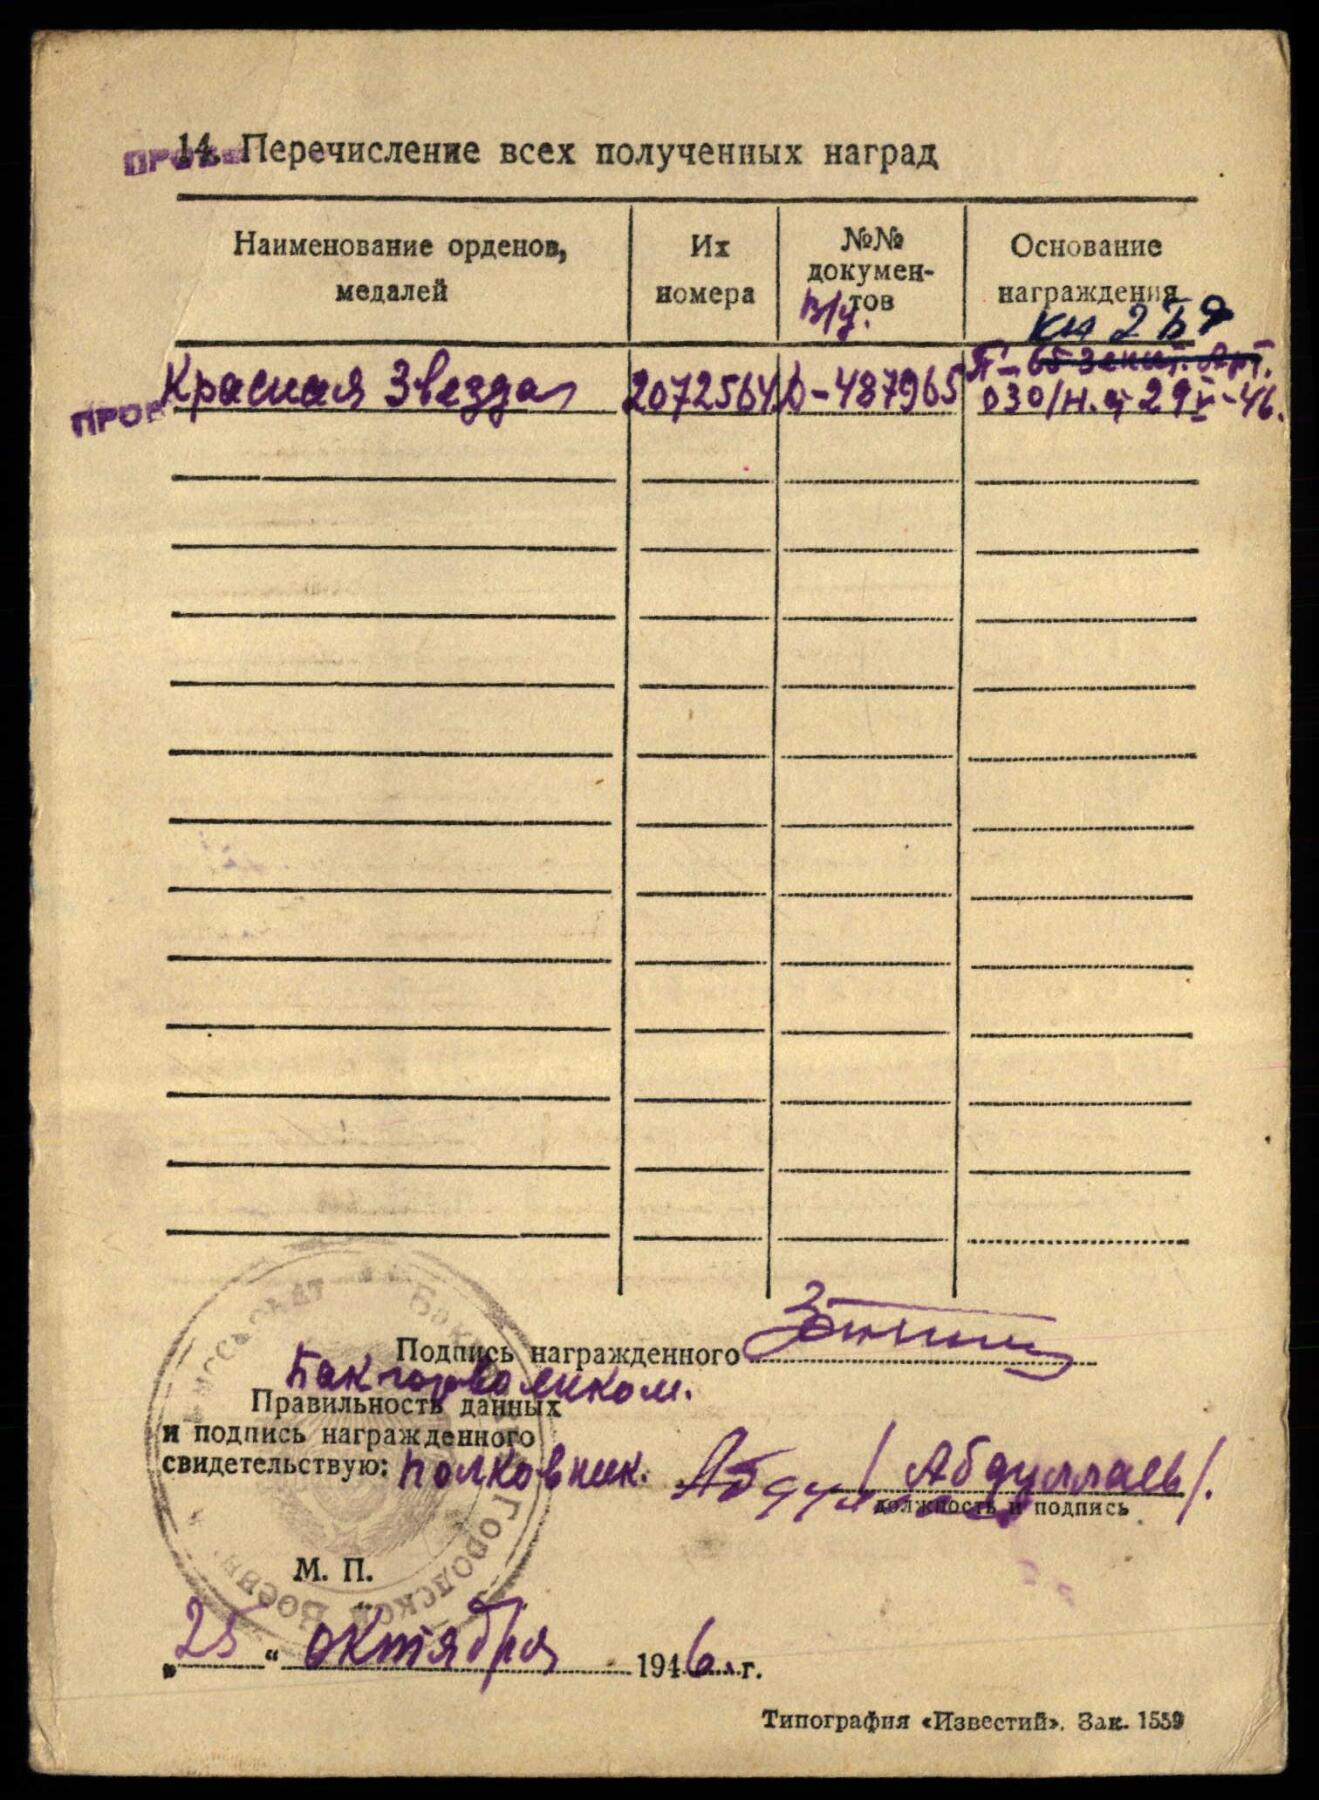 14. Перечисление всех полученных наград
Наименование орденов, медалей
Их номера
№№ документов
в/у.
Основание награждения
Красная Звезда 2072564 Д-487965
65 Зенит. Арт.
030/н. от 29 V-46.
ПРОВ
Подпись награжденного
Бакгорвоенком.
Правильность данных
и подпись награжденного
свидетельствую: полковник. /Абдуллаев/.
должность и подпись
М. П.
„25“ октября 1946 г.
Типография «Известий». Зак. 1559